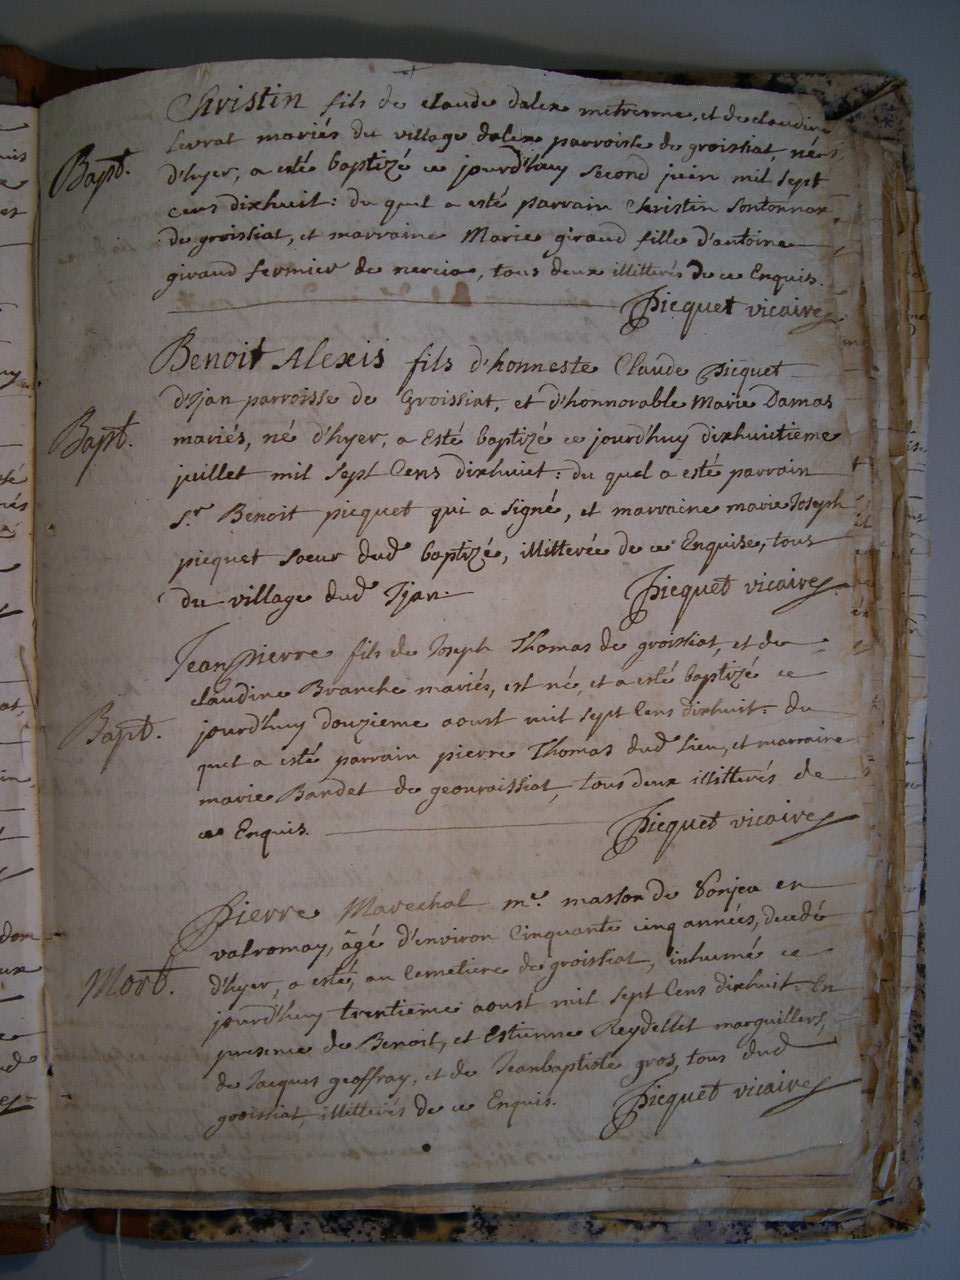 Christin fils de claude dalex metrenne, et de claudine
sevrat mariés du village dalex parroisse de groissiat, né
Bapt.
d'hyer, a esté baptizé ce jourd'huy second juin mil sept
cens dixhuit: du quel a esté parrain Christin sontonnax
de groissiat, et marraine Marie giraud fille d'antoine
giraud fermier de nercia, tous deux illitterés de ce Enquis.
Picquet vicaire
Benoit Alexis fils d'honneste Claude Picquet
d'Ijan parroisse de Groissiat, et d'honnorable Marie Damas
Bapt.
mariés, né d'hyer, a Esté baptizé ce jourd'huy dixhuitieme
juillet mil sept Cens dixhuict: du quel a esté parrain
Sr. Benoit picquet qui a signé, et marraine marie Joseph
picquet soeur dud baptizé, illitterée de ce Enquise, tous
du village dud Ijan.
Picquet vicaire
Jean Pierre fils de Joseph Thomas de groissiat, et de
claudine Branche mariés, est né, et a esté baptizé ce
Bapt.
jourd'huy douzieme aoust mil sept Cens dixhuit: du
quel a esté parrain pierre Thomas dud lieu, et marraine
marie Bandet de geovraissiat, tous deux illitterés de
ce Enquis.
Picquet vicaire
Pierre Marechal me. masson de Sonjeu en
valromay, âgé d'environ Cinquante cinq années, decedé
Mort.
d'hyer, a esté, au Cemetiere de groissiat, inhumé ce
jourd'huy trentieme aoust mil sept Cens dixhuit. En
presence de Benoit, et Estienne Reydellet marguillers,
de Jacques geoffray, et de Jeanbaptiste gros, tous dud
groissiat, illitterés de ce Enquis.
Picquet vicaire